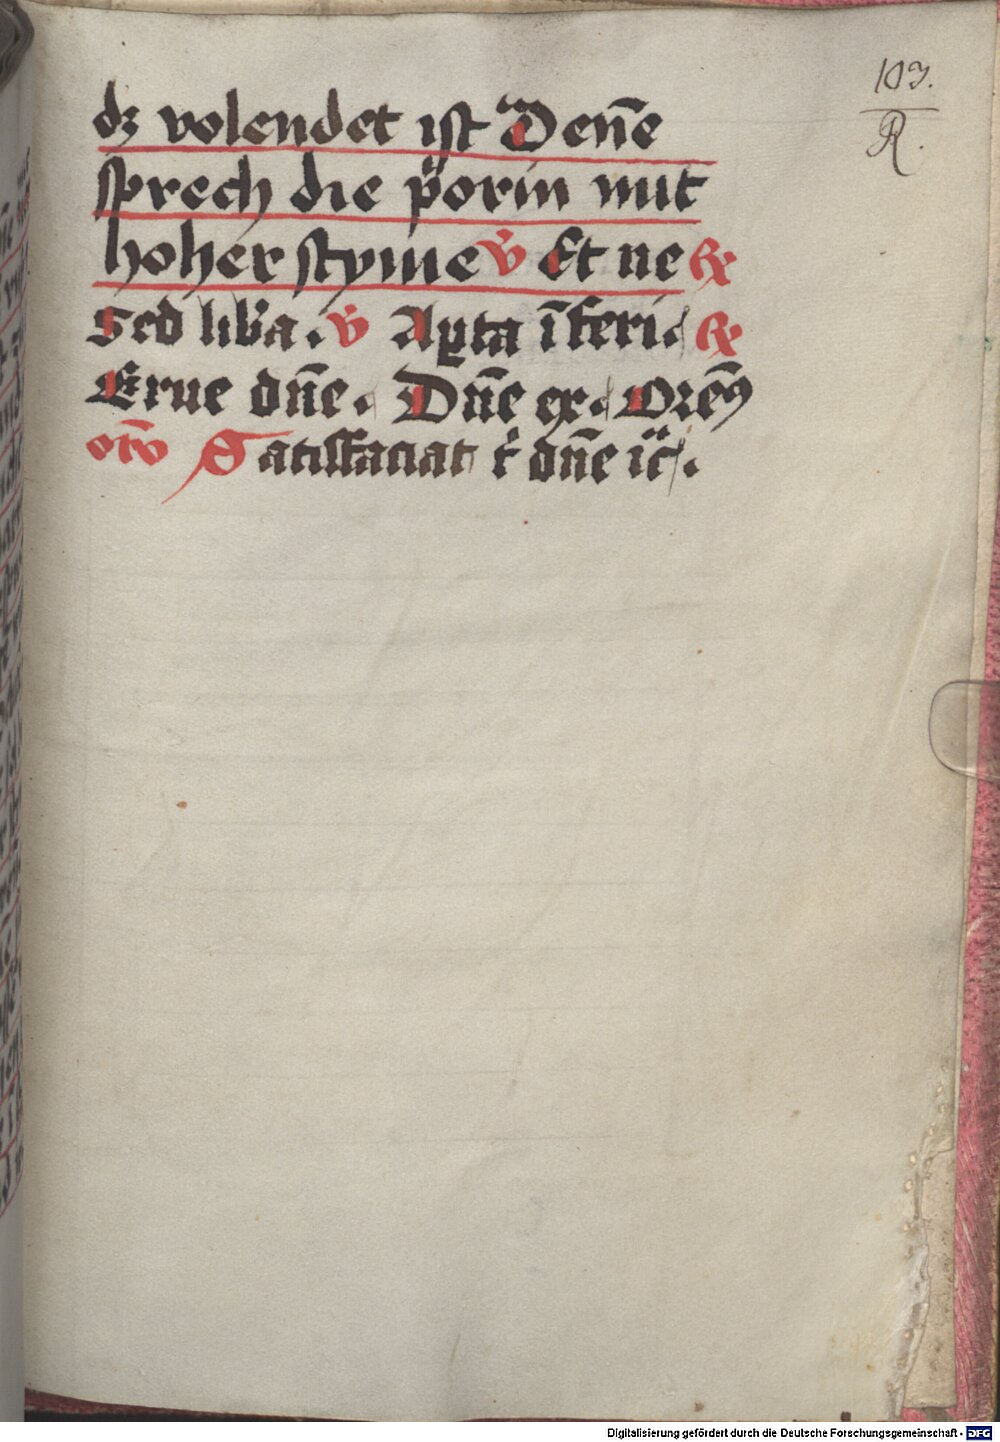 103.
R.
dz volendet ist Deñe
sprech die p̈orin mit
hoher styme v̄ Et ne ℟
Sed lib̾a . v̄ A porta ī feri. ℟
Erue dn̄e . Dn̄e ex. Orem⁹
oro Satisfaciat t̾ dn̄e ic̄ .
Digitalisierung gefördert durch die Deutsche Forschungsgemeinschaft - DFG